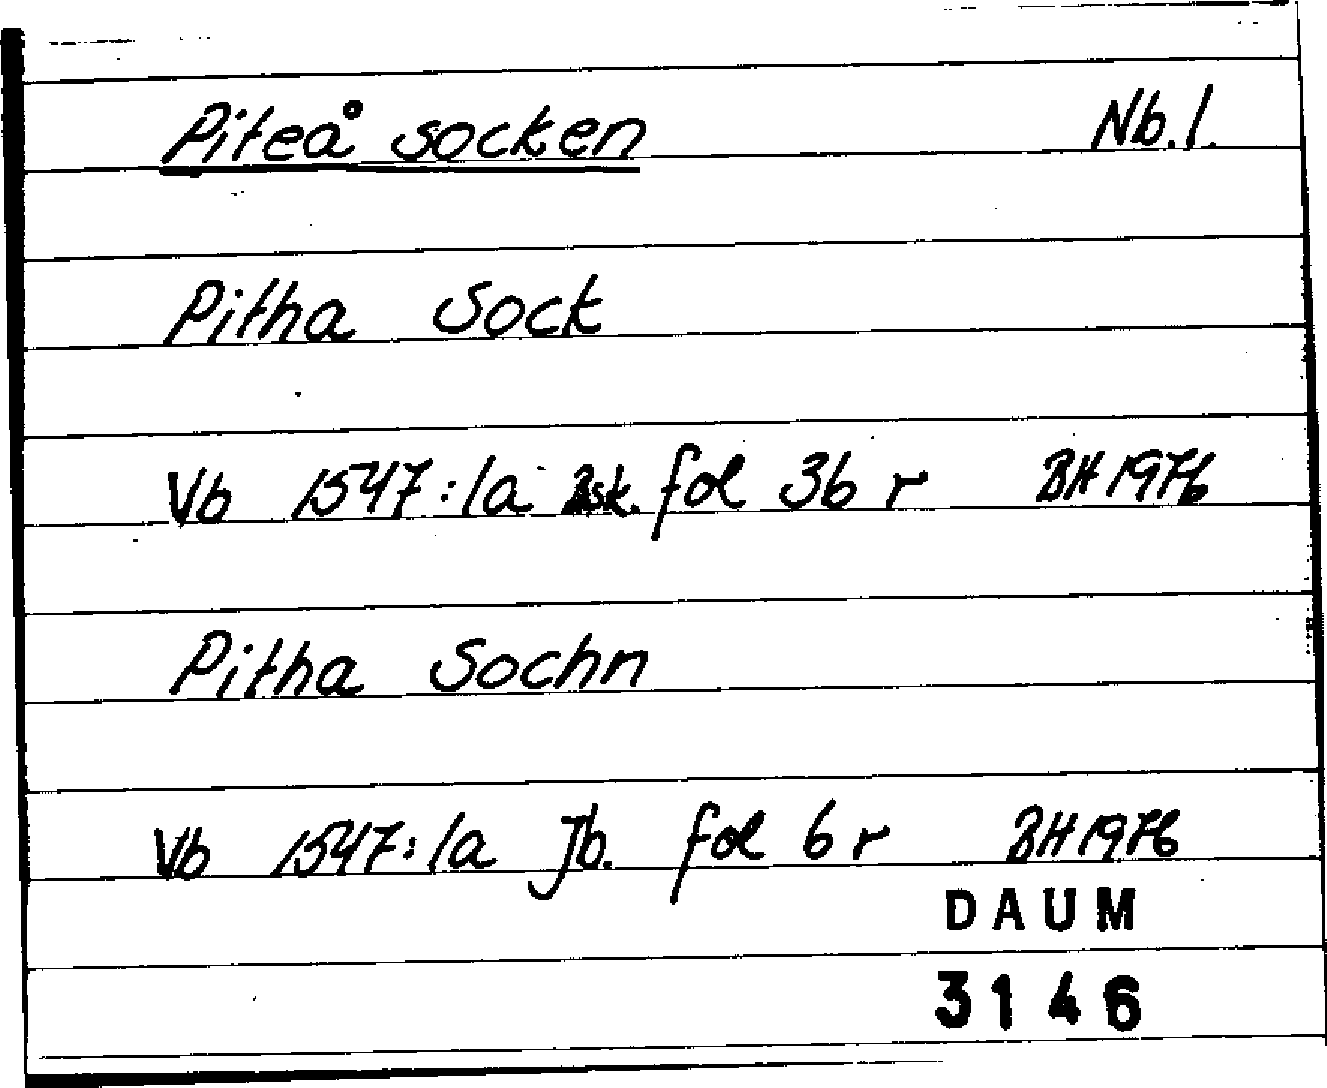 Piteå socken Nb.l.
Pitha Sock
Vb 1547:1a Bsk. fol 36 r BH 1976
Pitha Sochn
Vb 1547:1a Jb. fol 6 r BH 1976
DAUM
3146